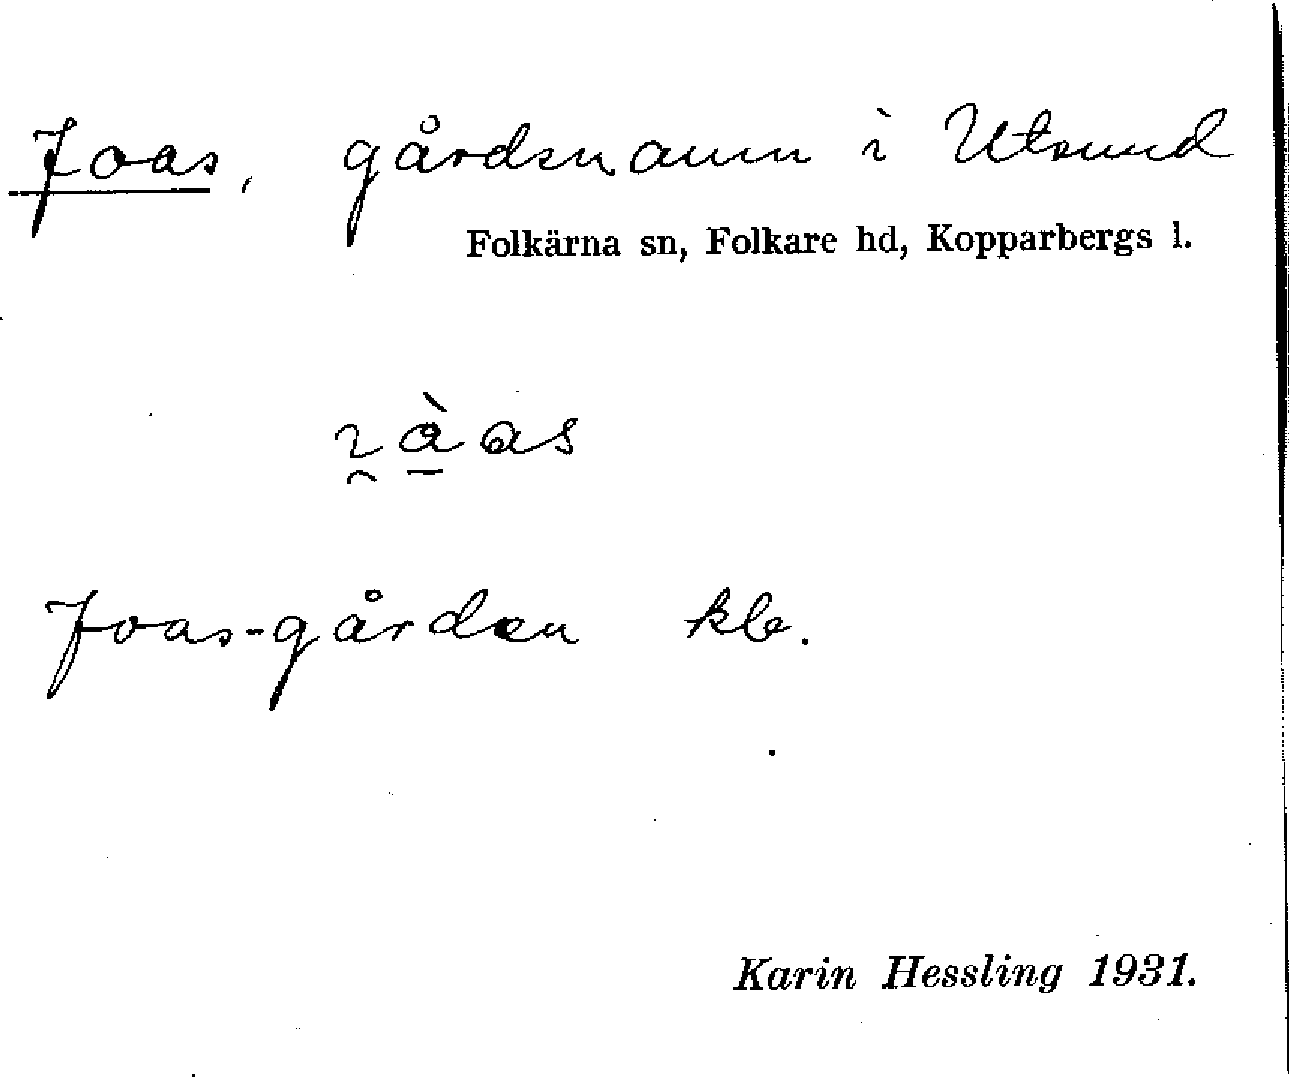 Joas, gårdsnamn i Utsund
Folkärna sn, Folkare hd, Kopparbergs l.
Joas-gården kb.
Karin Hessling 1931.